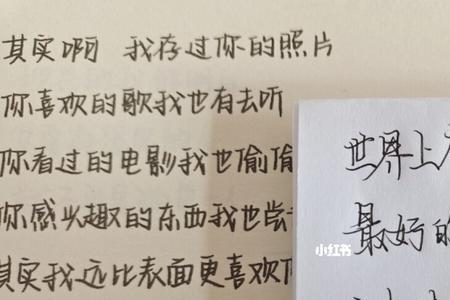 其实啊 我存过你的照片
你喜欢的歌我也有去听
你看过的电影我也偷偷
你感兴趣的东西我也尝
其实我远比表面更喜欢你
世界上
最好的
小红书